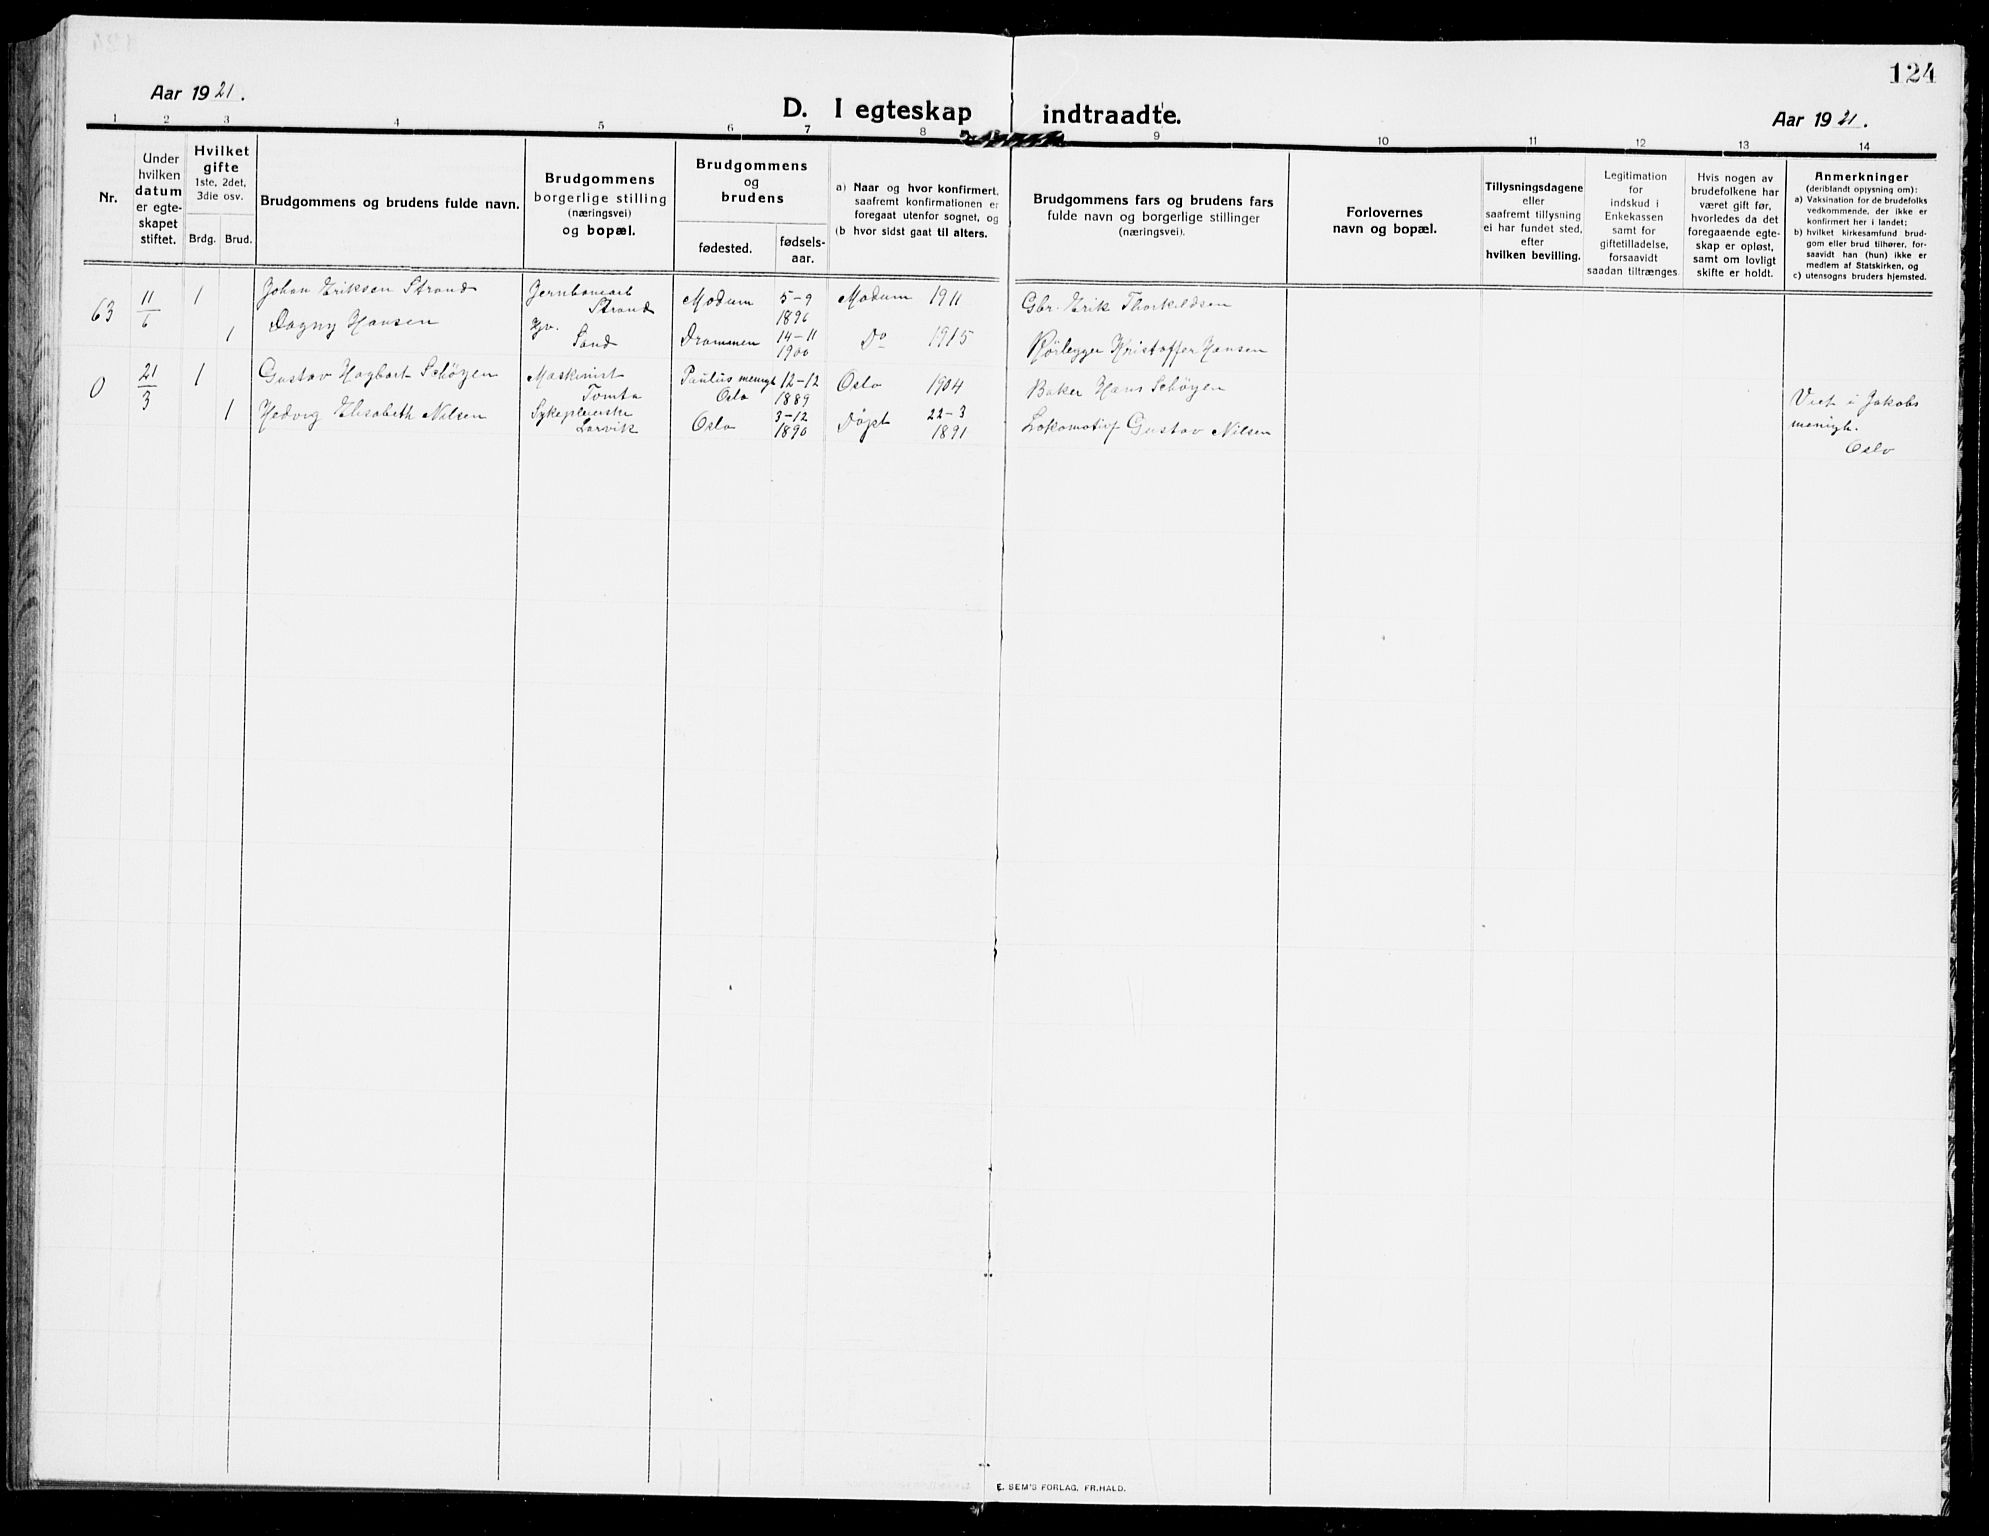 124
Aar 1921.
D. I egteskap indtraadte.
Aar 1921.
1 2 3 4 5 6 7 8 9 10 11 12 13 14
Nr.
Under
hvilken
datum
er egte-
skapet
stiftet.
Hvilket
gifte
1ste, 2det,
3die osv.
Brdg. Brud.
Brudgommens og brudens fulde navn.
Brudgommens
borgerlige stilling
(næringsvei)
og bopæl.
Brudgommens
og
brudens
fødested.
fødsels-
aar.
a) Naar og hvor konfirmert,
saafremt konfirmationen er
foregaat utenfor sognet, og
(b hvor sidst gaat til alters.
Brudgommens fars og brudens fars
fulde navn og borgerlige stillinger
(næringsvei).
Forlovernes
navn og bopæl.
Tillysningsdagene
eller
saafremt tillysning
ei har fundet sted,
efter
hvilken bevilling.
Legitimation
for
indskud i
Enkekassen
samt for
giftetilladelse,
forsaavidt
saadan tiltrænges
Hvis nogen av
brudefolkene har
været gift før,
hvorledes da det
foregaaende egte-
skap er opløst,
samt om lovligt
skifte er holdt.
Anmerkninger
(deriblandt opjysning om):
a) Vaksination for de brudefolks
vedkommende, der ikke er
konfirmert her i landet;
b) hvilket kirkesamfund brud-
gom eller brud tilhører, for-
saavidt han (hun) ikke er
medlem af Statskirken, og
c) utensogns bruders hjemsted.
63 11/6 1 Johan Eriksen Strand Jernbanearb Strand Modum 5-9 1896 Modum 1911 Gbr. Erik Thorkildsen
1 Dagny Hansen Hjv. Sand Drammen 14-11 1900 Do 1915 Rørlegger Kristoffer Hansen
0 21/3 1 Gustav Hagbart Schøyen Maskinist Tomta Paulus menigh Oslo 12-12 1889 Oslo 1904 Baker Hans Schøyen
1 Hedvig Elisabeth Nilsen Sykepleierske Larvik Oslo 3-12 1890 Døpt 22-3 1891 Lokomotivf Gustav Nilsen
Viet i Jakobs
menigh.
Oslo
E. SEM'S FORLAG, FR.HALD.